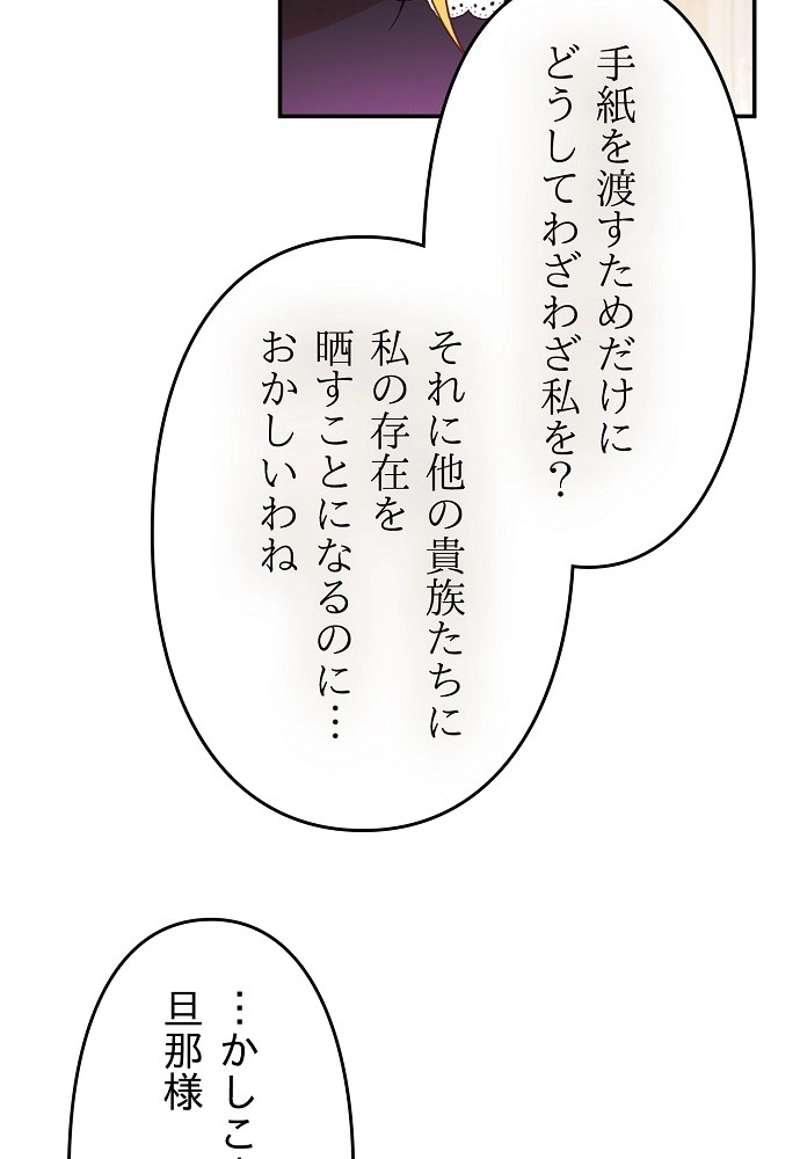 手紙を渡すためだけに
どうしてわざわざ私を?
それに他の貴族たちに
私の存在を
晒すことになるのに…
おかしいわね
…かしこ
旦那様